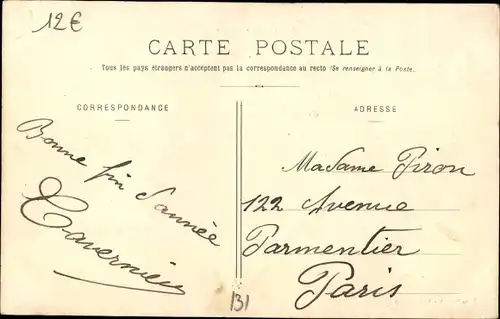 12€
CARTE POSTALE
Tous les pays étrangers n'acceptent pas la correspondance au recto (Se renseigner à la Poste.
CORRESPONDANCE
Bonne fin d'année
Tavernier
ADRESSE
Madame Piron
122 Avenue
Parmentier
Paris
131